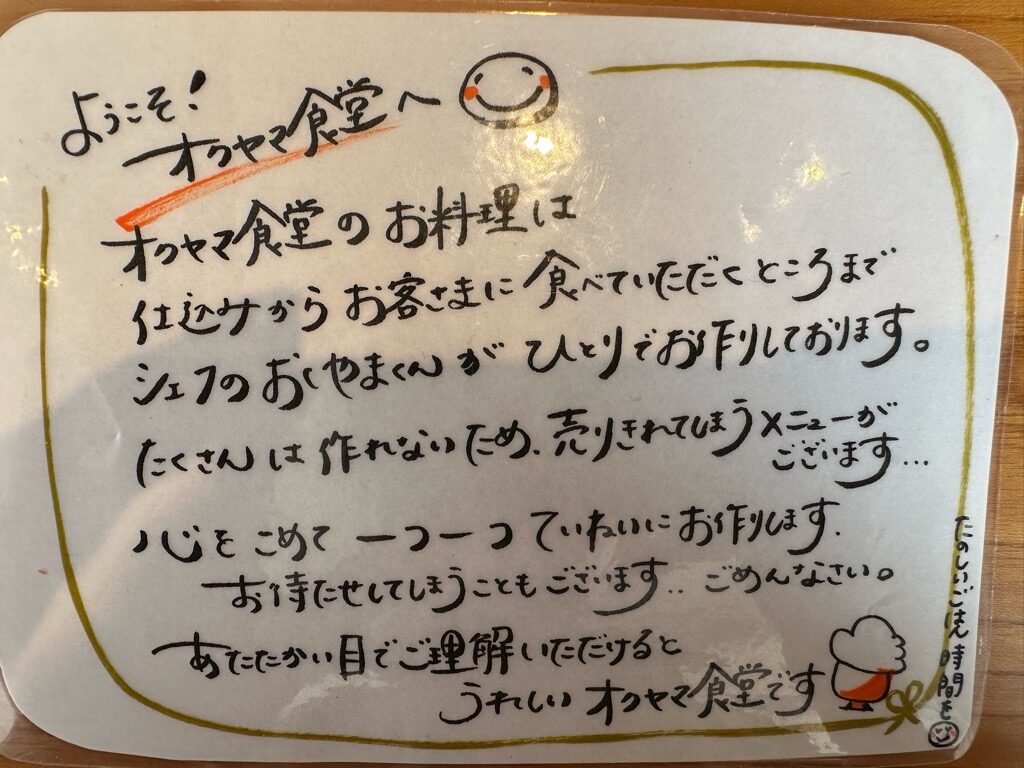 ようこそ!
オクヤマ食堂へ
オクヤマ食堂のお料理は
仕込みからお客さまに食べていただくところまで
シェフのおくやまくんがひとりでお作りしております。
たくさんは作れないため、売りきれてしまうメニューが
ございます…
心をこめて一つ一つていねいにお作りします.
お待たせしてしまうこともございます.. ごめんなさい。
あたたかい目でご理解いただけると
うれしいオクヤマ食堂です
たのしいごはん時間を